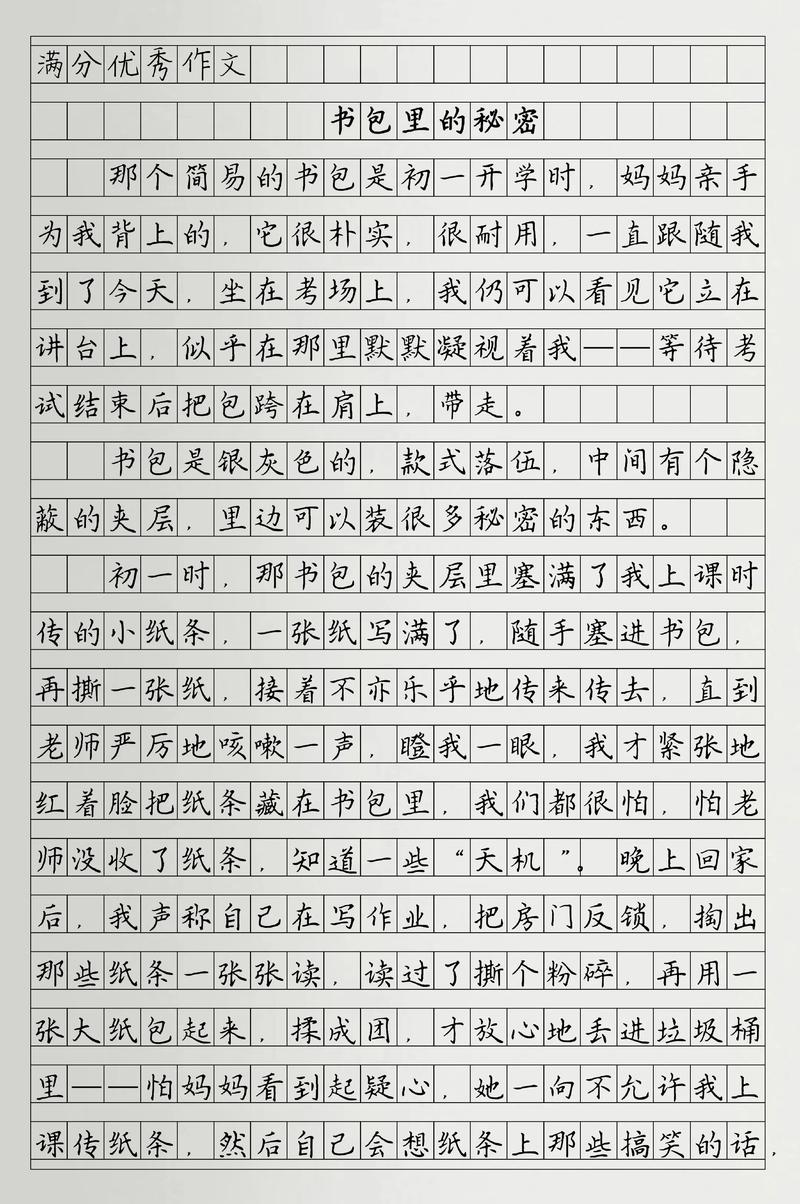 满分优秀作文
书包里的秘密
那个简易的书包是初一开学时，妈妈亲手
为我背上的，它很朴实，很耐用，一直跟随我
到了今天，坐在考场上，我仍可以看见它立在
讲台上，似乎在那里默默凝视着我——等待考
试结束后把包跨在肩上，带走。
书包是银灰色的，款式落伍，中间有个隐
蔽的夹层，里边可以装很多秘密的东西。
初一时，那书包的夹层里塞满了我上课时
传的小纸条，一张纸写满了，随手塞进书包，
再撕一张纸，接着不亦乐乎地传来传去，直到
老师严厉地咳嗽一声，瞪我一眼，我才紧张地
红着脸把纸条藏在书包里，我们都很怕，怕老
师没收了纸条，知道一些“天机”。晚上回家
后，我声称自己在写作业，把房门反锁，掏出
那些纸条一张张读，读过了撕个粉碎，再用一
张大纸包起来，揉成团，才放心地丢进垃圾桶
里——怕妈妈看到起疑心，她一向不允许我上
课传纸条，然后自己会想纸条上那些搞笑的话，